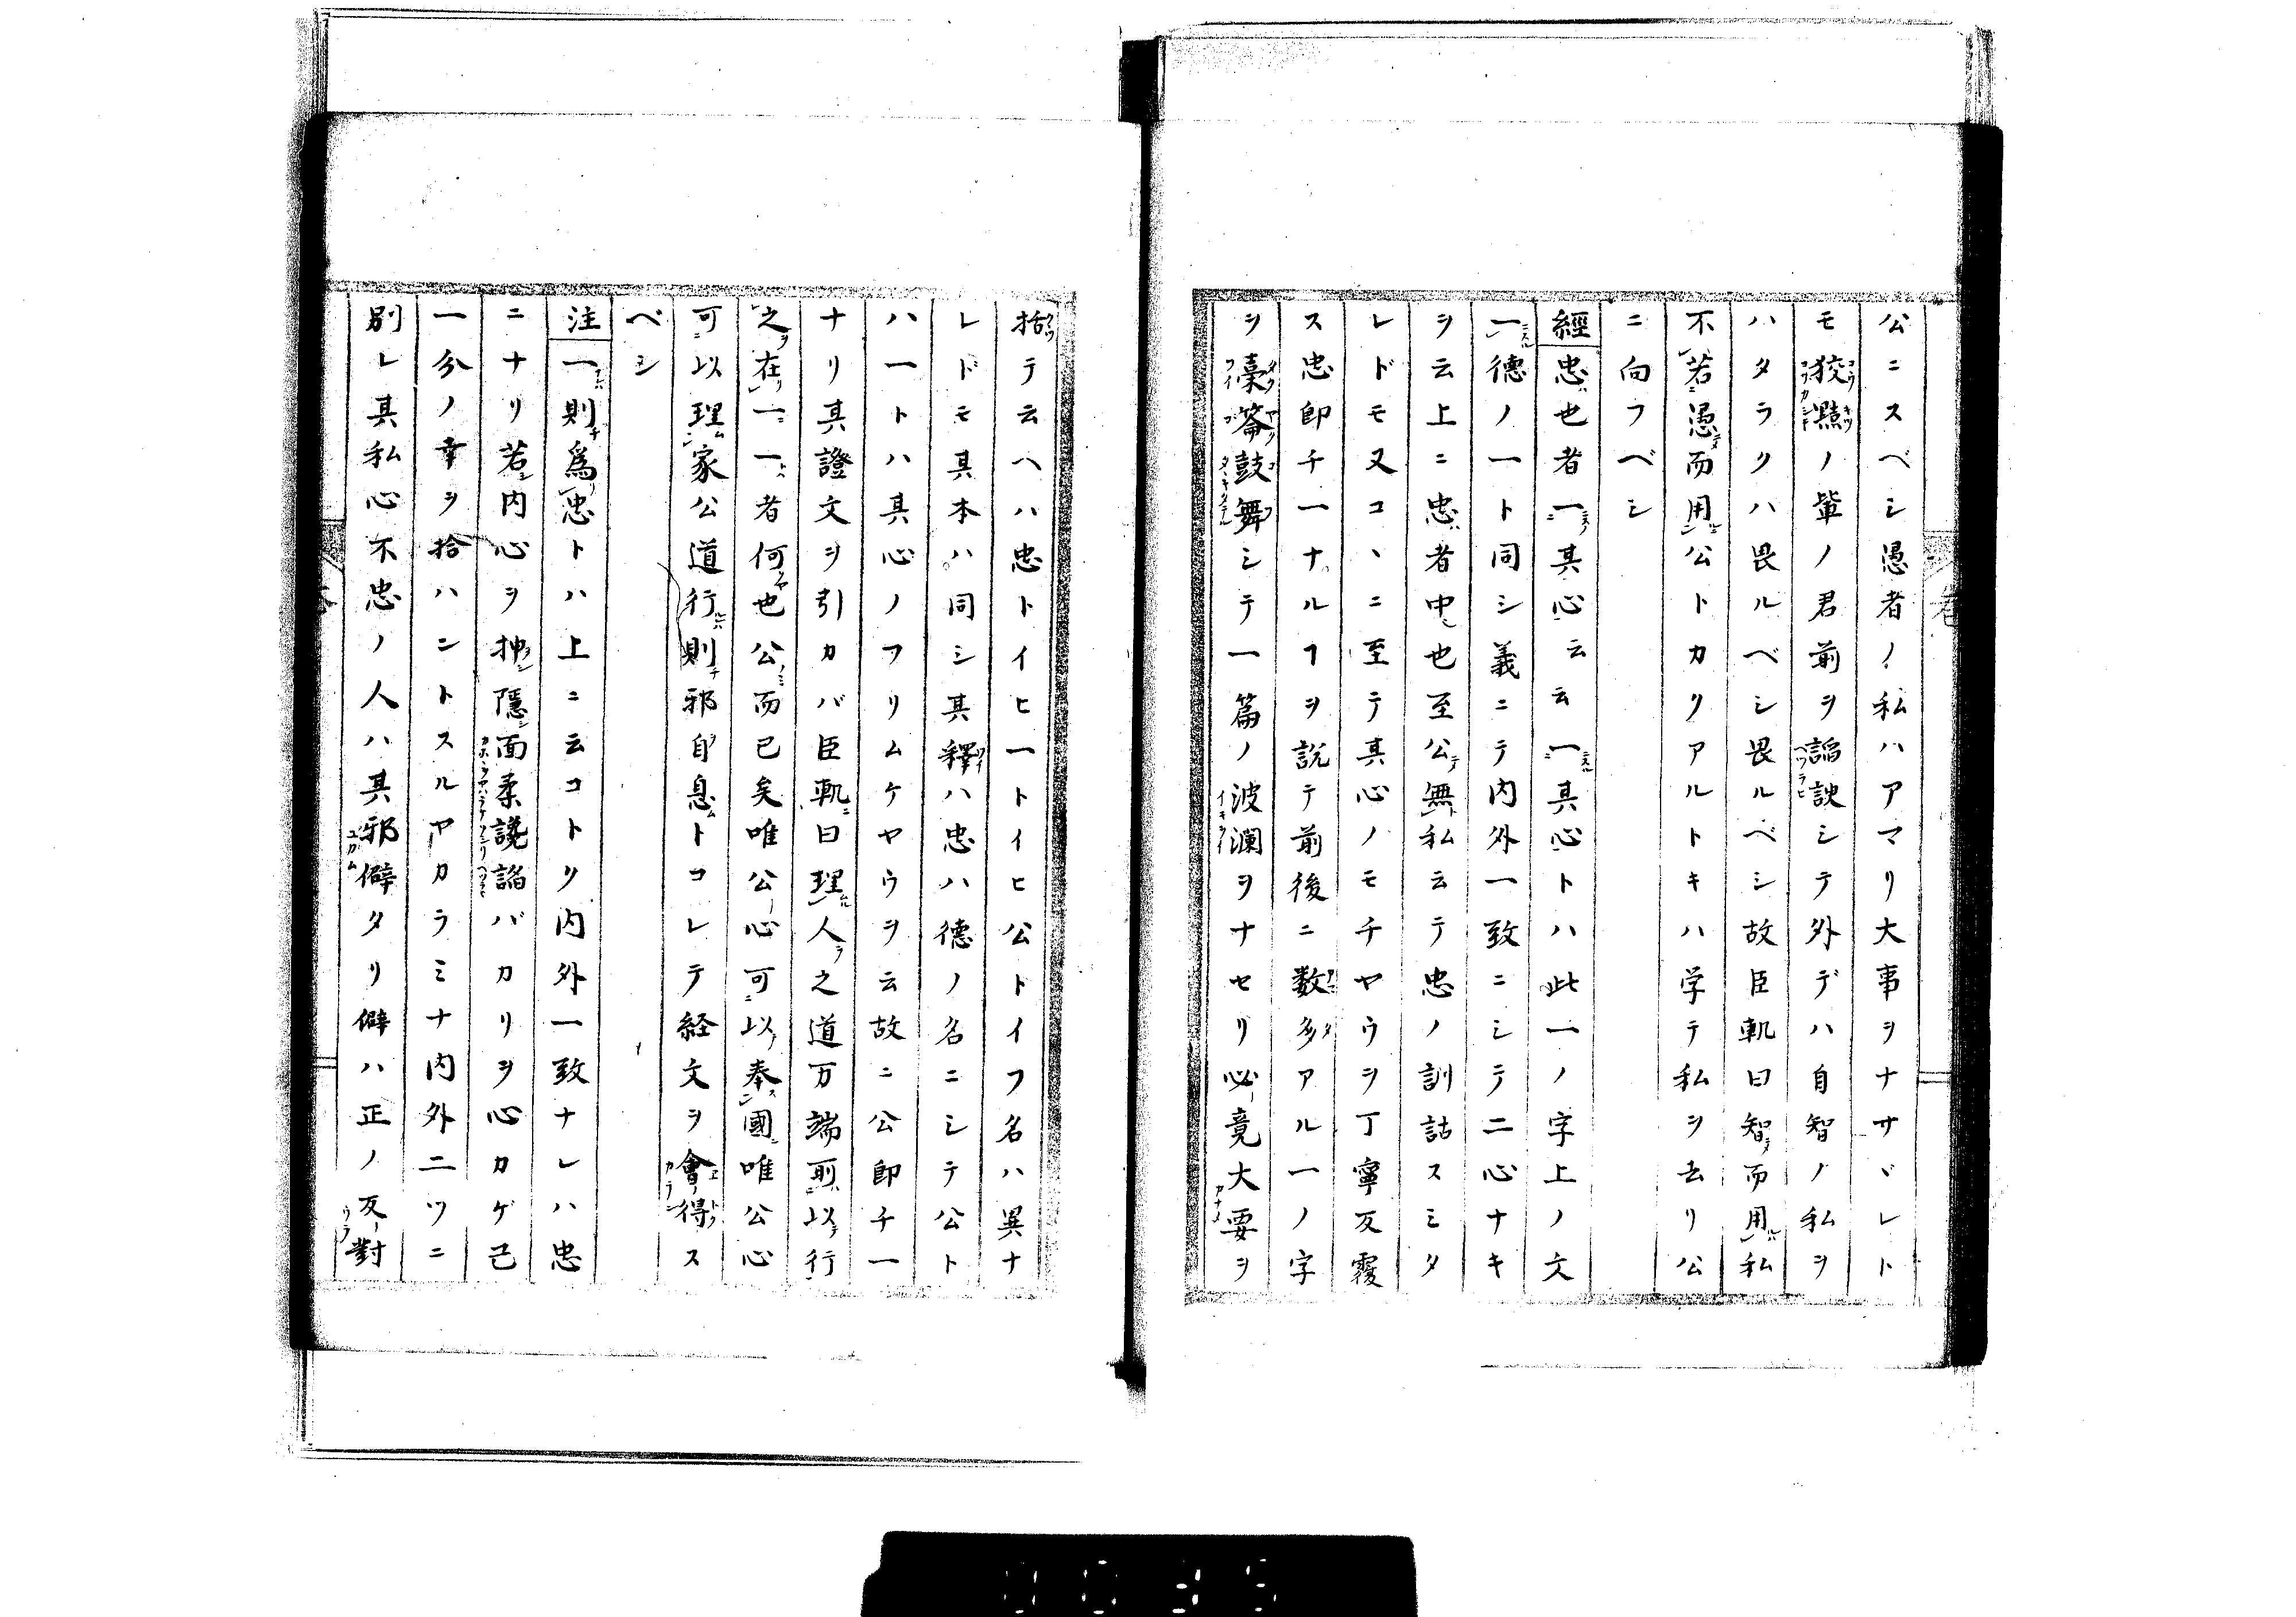 公ニスベシ愚者ノ私ハアマリ大事ヲナサヾレト
モ狡黠ノ輩ノ君前ヲ諂諛シテ外デハ自智ノ私ヲ
ハタラクハ畏ルベシ畏ルベシ故臣軌曰智而用私
不若愚而用公トカクアルトキハ学テ私ヲ去リ公
ニ向フベシ
經忠也者一其心云云一其心トハ此一ノ字上ノ文
一德ノ一ト同シ義ニテ内外一致ニシテ二心ナキ
ヲ云上ニ忠者中也至公無私云テ忠ノ訓詁スミタ
レドモ又コヽニ至テ其心ノモチヤウヲ丁寧反覆
ス忠即チ一ナルフヲ説テ前後ニ数多アル一ノ字
ヲ橐籥鼓舞シテ一篇ノ波瀾ヲナセリ必竟大要ヲ
括テ云ヘハ忠トイヒ一トイヒ公トイフ名ハ異ナ
レドモ其本ハ同シ其釋ハ忠ハ德ノ名ニシテ公ト
ハ一トハ其心ノフリムケヤウヲ云故ニ公即チ一
ナリ其證文ヲ引カバ臣軌曰理人之道万端所以行
之在一一者何也公而已矣唯公心可以奉國唯公心
可以理家公道行則邪自息トコレテ経文ヲ會得ス
ベシ
注一則爲忠トハ上ニ云コトク内外一致ナレハ忠
ニナリ若内心ヲ押隱面柔讒諂バカリヲ心カゲ己
一分ノ幸ヲ拾ハントスルヤカラミナ内外二ツニ
別レ其私心不忠ノ人ハ其邪僻タリ僻ハ正ノ反對